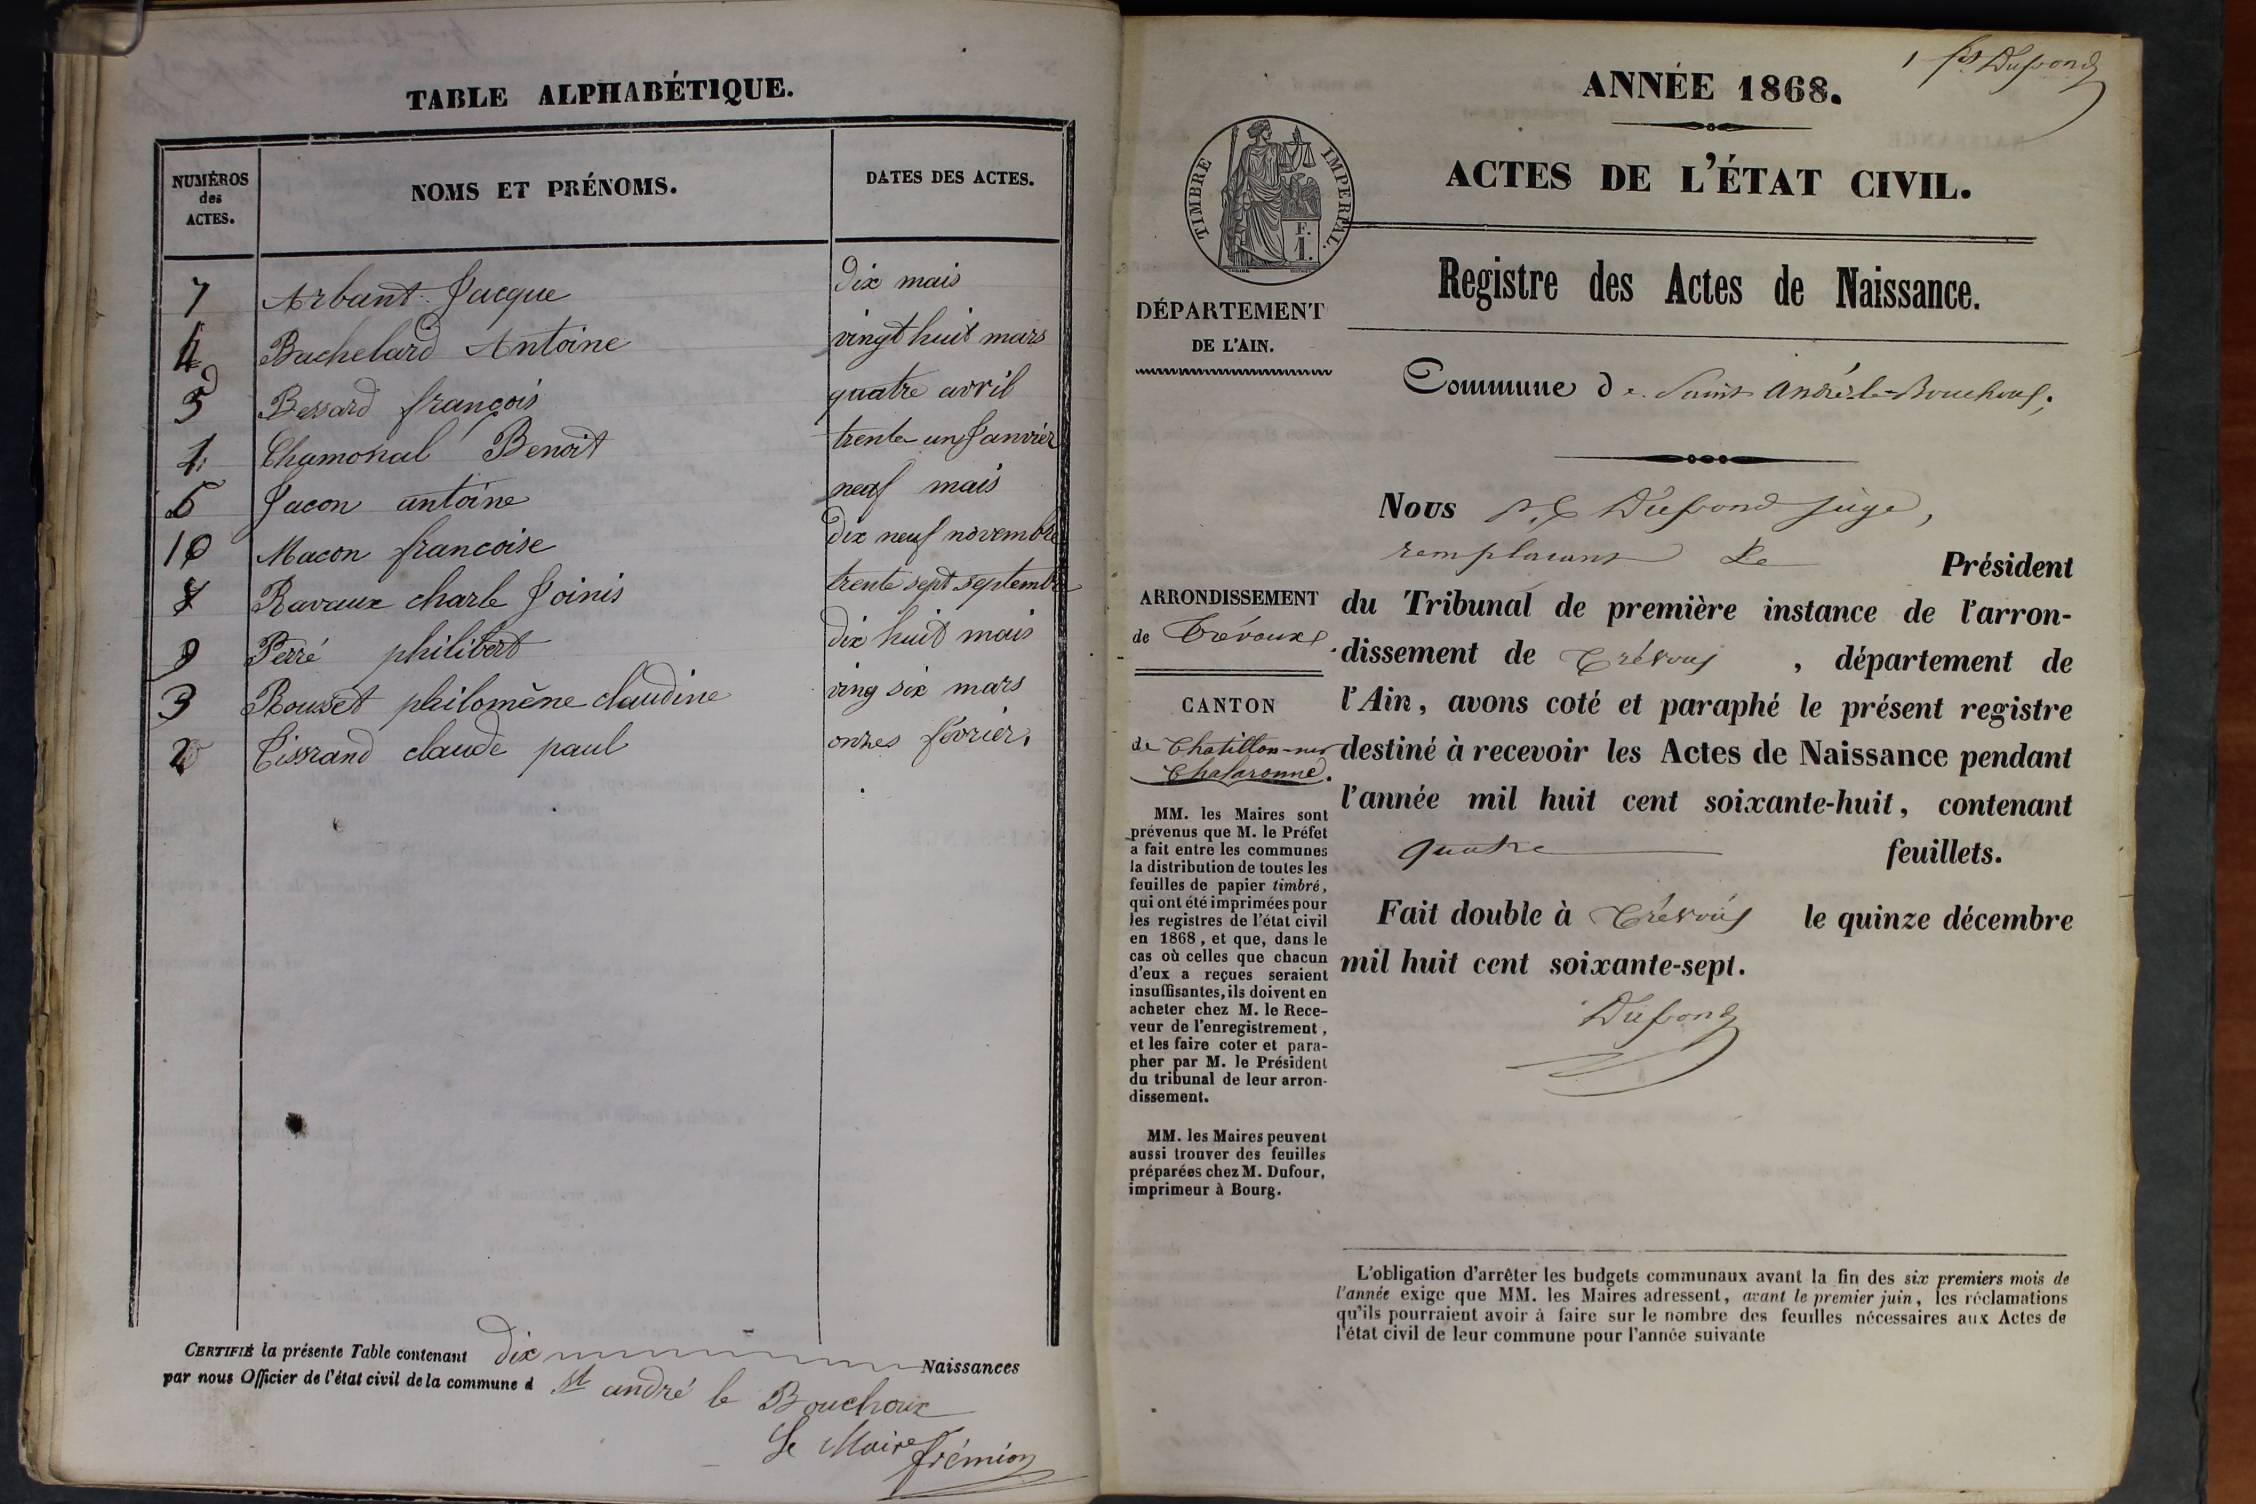 TABLE ALPHABÉTIQUE.
NUMÉROS des ACTES.
NOMS ET PRÉNOMS.
DATES DES ACTES.
7 Arbant Jacque dix mais
4 Bachelard Antoine vingt huit mars
5 Bessard françois quatre avril
1 Chamonal Benoit trente un Janvier
6 Jacon antoine neuf mais
10 Macon francoise dix neuf novembre
8 Ravaux charle Joinis trente sept septembre
9 Perré philibert dix huit mais
3 Rousset philomène claudine ving six mars
2 Tissrand claude paul onzes février.
CERTIFIÉ la présente Table contenant dix Naissances
par nous Officier de l'état civil de la commune d St andré le Bouchoux
Le Maire
frémion
1 Dufond
ANNÉE 1868.
ACTES DE L'ÉTAT CIVIL.
TIMBRE IMPERIAL.
F.
1.
Registre des Actes de Naissance.
DÉPARTEMENT
DE L'AIN.
Commune de Saint André-le-Bouchoux;
Nous Dufond juge,
remplacant Le Président
du Tribunal de première instance de l'arron-
dissement de Trévoux, département de
l'Ain, avons coté et paraphé le présent registre
destiné à recevoir les Actes de Naissance pendant
l'année mil huit cent soixante-huit, contenant
quatre feuillets.
Fait double à Trévoux le quinze décembre
mil huit cent soixante-sept.
Dufond
ARRONDISSEMENT
de Trévoux
CANTON
de Chatillon-sur
Chalaronne.
MM. les Maires sont
prévenus que M. le Préfet
a fait entre les communes
la distribution de toutes les
feuilles de papier timbré,
qui ont été imprimées pour
les registres de l'état civil
en 1868, et que, dans le
cas où celles que chacun
d'eux a reçues seraient
insuffisantes, ils doivent en
acheter chez M. le Rece-
veur de l'enregistrement,
et les faire coter et para-
pher par M. le Président
du tribunal de leur arron-
dissement.
MM. les Maires peuvent
aussi trouver des feuilles
préparées chez M. Dufour,
imprimeur à Bourg.
L'obligation d'arrêter les budgets communaux avant la fin des six premiers mois de
l'année exige que MM. les Maires adressent, avant le premier juin, les réclamations
qu'ils pourraient avoir à faire sur le nombre des feuilles nécessaires aux Actes de
l'état civil de leur commune pour l'année suivante